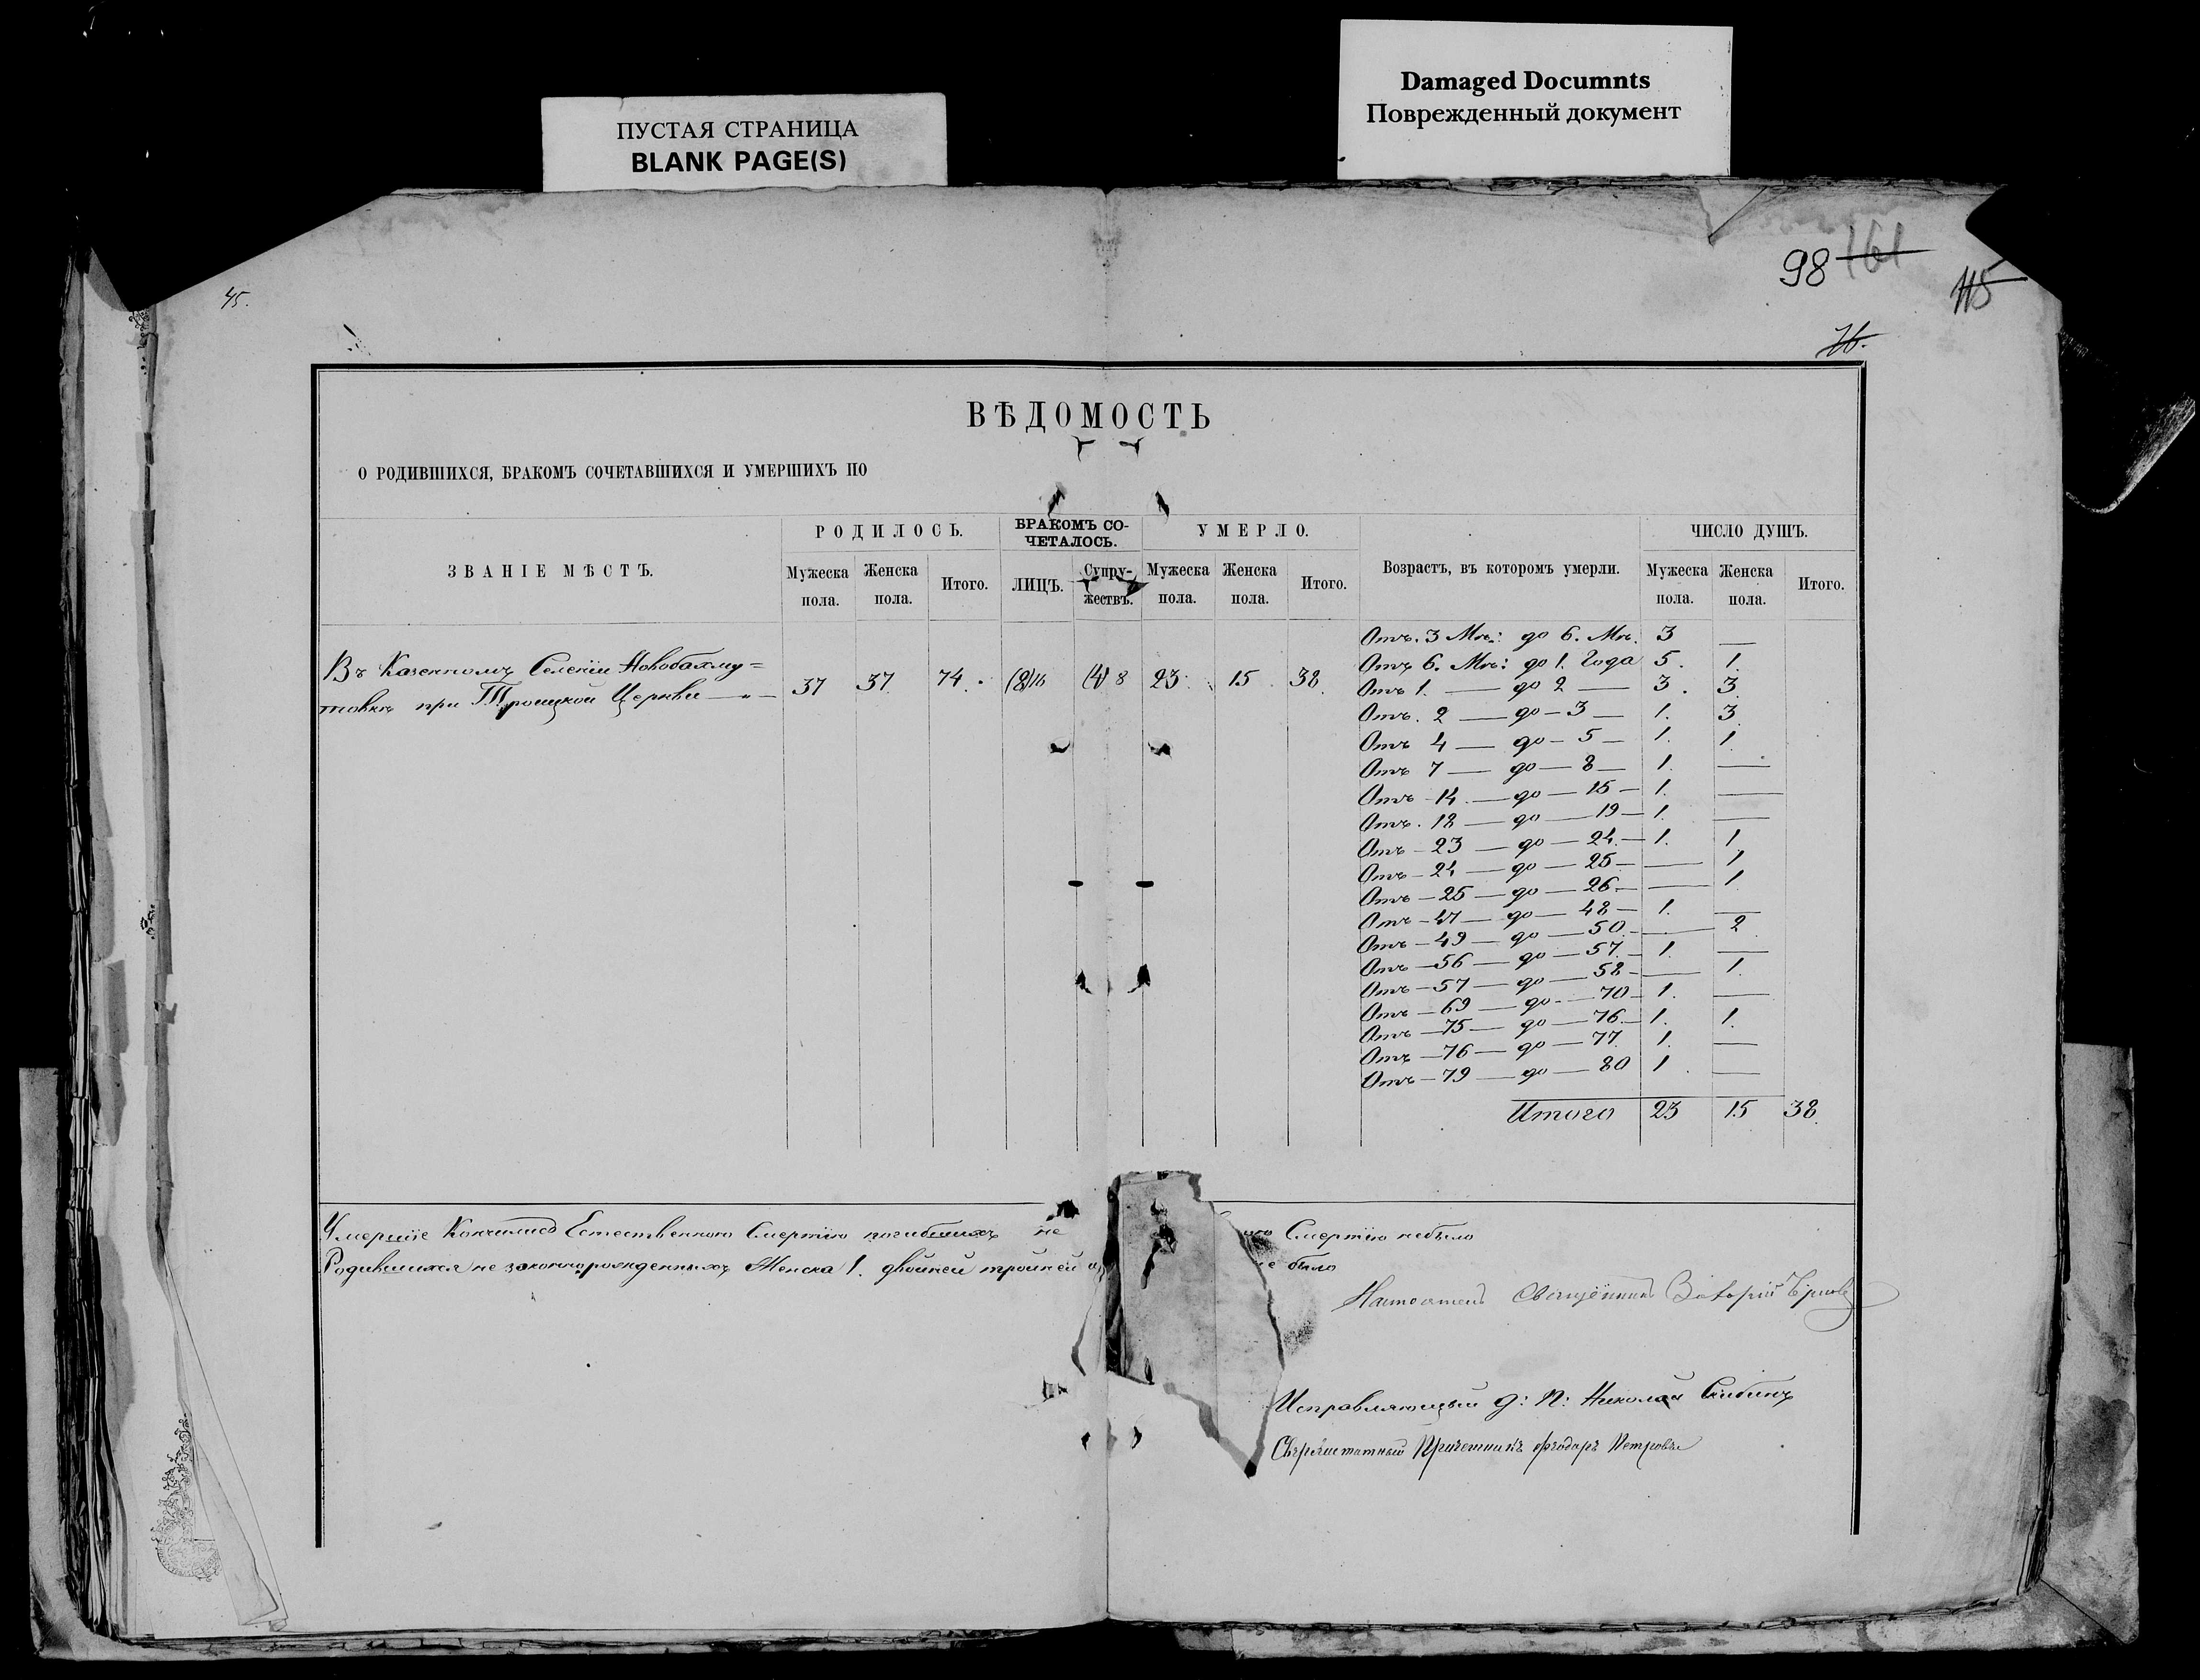 Damaged Documnts
Поврежденный документ
ПУСТАЯ СТРАНИЦА
BLANK PAGE(S)
98 161
115
45.
ВѢДОМОСТЬ
О РОДИВШИХСЯ, БРАКОМЪ СОЧЕТАВШИХСЯ И УМЕРШИХЪ ПО
ЗВАНІЕ МѢСТЪ. РОДИЛОСЬ. БРАКОМЪ СО-ЧЕТАЛОСЬ. УМЕРЛО. Возрастъ, въ которомъ умерли. ЧИСЛО ДУШЪ.
Мужеска пола. Женска пола. Итого. ЛИЦЪ. Супру-жествъ. Мужеска пола. Женска пола. Итого. Мужеска пола. Женска пола. Итого.
Въ Казенномъ Селеніи Новобахму=
товкѣ при Троицкой Церкви
37 37 74. (8) 16 (4) 8 23 15 38
Отъ. 3 Мѣ: до 6. Мѣ. 3 —
Отъ 6. Мѣ: до 1. Года 5. 1.
Отъ 1. — до 2 — 3. 3
Отъ. 2 — до — 3 — 1. 3
Отъ 4 — до — 5 — 1. 1
Отъ 7 — до — 8 — 1. —
Отъ 14. — до — 15 — 1. —
Отъ. 18 — до — 19 — 1. —
Отъ — 23 — до — 24. — 1. 1.
Отъ — 24 — до — 25 — — 1
Отъ — 25 — до — 26. — — 1
Отъ — 47 — до — 48 — 1. —
Отъ — 49 — до — 50. — — 2
Отъ — 56 — до — 57. — 1. —
Отъ — 57 — до — 58 — — 1.
Отъ — 69 — до — 70 — 1. —
Отъ — 75 — до — 76. — 1. 1.
Отъ — 76 — до — 77 1. —
Отъ — 79 — до — 80 1. —
Итого 23 15 38
Умершіе Кончились Естественною Смертію погибшихъ не Смертію небыло
Родившихся не законнорожденныхъ Женска 1. двойней тройней не было
Настоятель Священникъ
Исправляющій д: п: Николай
Сверхштатный Причетникъ Ѳеодоръ Петровъ